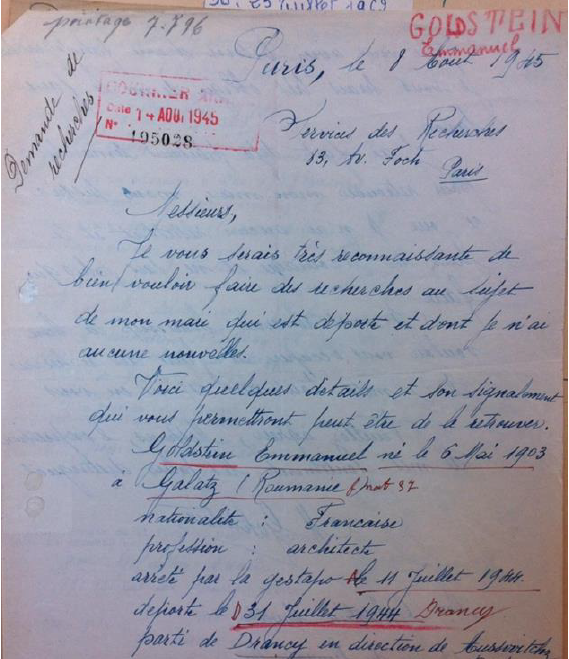 pointage 7.796
GOLDSTEIN
Emmanuel
Paris, le 8 Aout 1945
Demande de
recherches
COURRIER
14 AOUT 1945
N° 195028
Services des Recherches
83, Av. Foch
Paris
Messieurs,
Je vous serais très reconnaissante de
bien vouloir faire des recherches au sujet
de mon mari qui est deporte et dont je n'ai
aucune nouvelles.
Voici quelques details et son signalement
qui vous permettront peut être de le retrouver.
Goldstein Emmanuel né le 6 Mai 1903
à Galatz (Roumanie nat 37
nationalite : Francaise
profession : architecte
arrêté par la gestapo le 11 Juillet 1944.
deporte le 31 Juillet 1944 Drancy
parti de Drancy en direction de